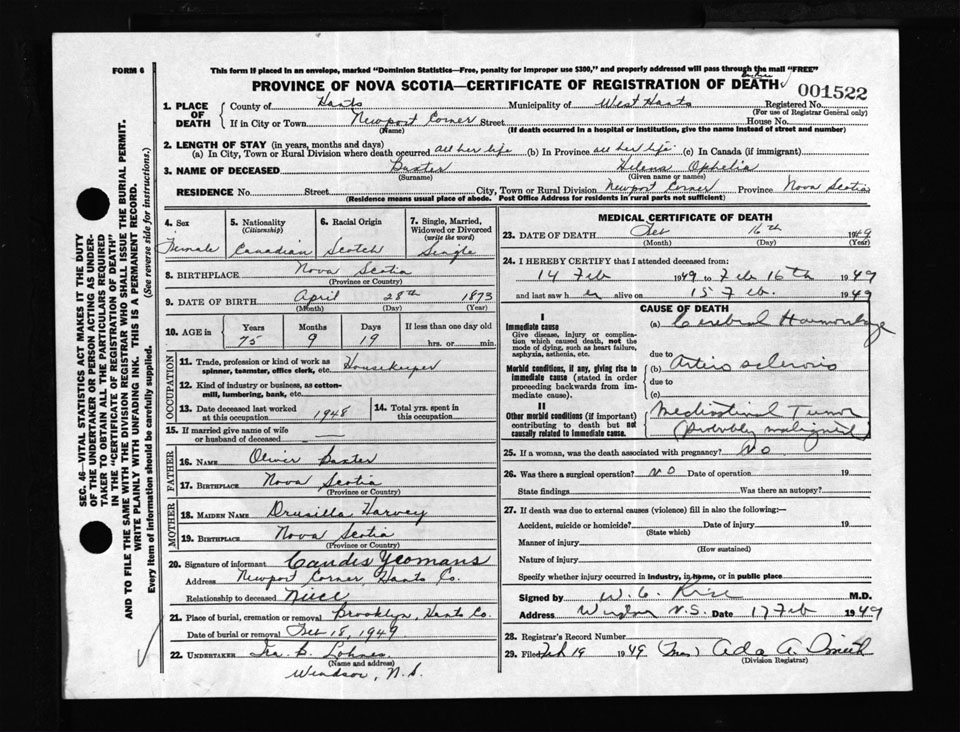 FORM 6
This form if placed in an envelope, marked "Dominion Statistics—Free, penalty for improper use $300," and properly addressed will pass through the mail "FREE"
PROVINCE OF NOVA SCOTIA—CERTIFICATE OF REGISTRATION OF DEATH
001522
1. PLACE OF DEATH
County of Hants Municipality of West Hants Registered No.
(For use of Registrar General only)
If in City or Town Newport Corner Street House No.
(Name) (If death occurred in a hospital or institution, give the name instead of street and number)
2. LENGTH OF STAY (in years, months and days)
(a) In City, Town or Rural Division where death occurred all her life (b) In Province all her life (c) In Canada (if immigrant)
3. NAME OF DECEASED Baxter Helena Ophelia
(Surname) (Given name or names)
RESIDENCE No. Street City, Town or Rural Division Newport Corner Province Nova Scotia
(Residence means usual place of abode. Post Office Address for residents in rural parts not sufficient)
4. Sex Female
5. Nationality (Citizenship) Canadian
6. Racial Origin Scotch
7. Single, Married, Widowed or Divorced (write the word) Single
8. BIRTHPLACE Nova Scotia
(Province or Country)
9. DATE OF BIRTH April 28th 1873
(Month) (Day) (Year)
10. AGE in Years Months Days If less than one day old
75 9 19 hrs. or min.
OCCUPATION
11. Trade, profession or kind of work as spinner, teamster, office clerk, etc. Housekeeper
12. Kind of industry or business, as cotton-mill, lumbering, bank, etc.
13. Date deceased last worked at this occupation 1948
14. Total yrs. spent in this occupation
15. If married give name of wife or husband of deceased —
FATHER
16. NAME Oliver Baxter
17. BIRTHPLACE Nova Scotia
(Province or Country)
MOTHER
18. MAIDEN NAME Drusilla Harvey
19. BIRTHPLACE Nova Scotia
(Province or Country)
20. Signature of informant Candis Yeomans
Address Newport Corner, Hants Co.
Relationship to deceased Niece
21. Place of burial, cremation or removal Brooklyn, Hants Co.
Date of burial or removal Feb 18, 1949
22. UNDERTAKER Ira B. Lohnes
(Name and address)
Windsor, N.S.
MEDICAL CERTIFICATE OF DEATH
23. DATE OF DEATH Feb 16th 1949
(Month) (Day) (Year)
24. I HEREBY CERTIFY that I attended deceased from:
14 Feb 1949 to Feb 16th 1949
and last saw her alive on 15 Feb. 1949
CAUSE OF DEATH
I
Immediate cause
Give disease, injury or complication which caused death, not the mode of dying, such as heart failure, asphyxia, asthenia, etc.
(a) Cerebral Haemorrhage
due to
Morbid conditions, if any, giving rise to immediate cause (stated in order proceeding backwards from immediate cause).
(b) Arterio sclerosis
due to
(c)
II
Other morbid conditions (if important) contributing to death but not causally related to immediate cause.
Mediastinal Tumor
(probably malignant)
25. If a woman, was the death associated with pregnancy? No
26. Was there a surgical operation? No Date of operation 19
State findings Was there an autopsy?
27. If death was due to external causes (violence) fill in also the following:—
Accident, suicide or homicide? Date of injury 19
(State which)
Manner of injury
(How sustained)
Nature of injury
Specify whether injury occurred in industry, in home, or in public place
Signed by W. C. M.D.
Address Windsor N.S. Date 17 Feb 1949
28. Registrar's Record Number
29. Filed Feb 19 1949 (Mrs) Ada A. Smith
(Division Registrar)
SEC. 46—VITAL STATISTICS ACT MAKES IT THE DUTY
OF THE UNDERTAKER OR PERSON ACTING AS UNDER-
TAKER TO OBTAIN ALL THE PARTICULARS REQUIRED
IN THE "CERTIFICATE OF REGISTRATION OF DEATH"
AND TO FILE THE SAME WITH THE DIVISION REGISTRAR WHO SHALL ISSUE THE BURIAL PERMIT.
WRITE PLAINLY WITH UNFADING INK. THIS IS A PERMANENT RECORD.
Every item of information should be carefully supplied. (See reverse side for instructions.)